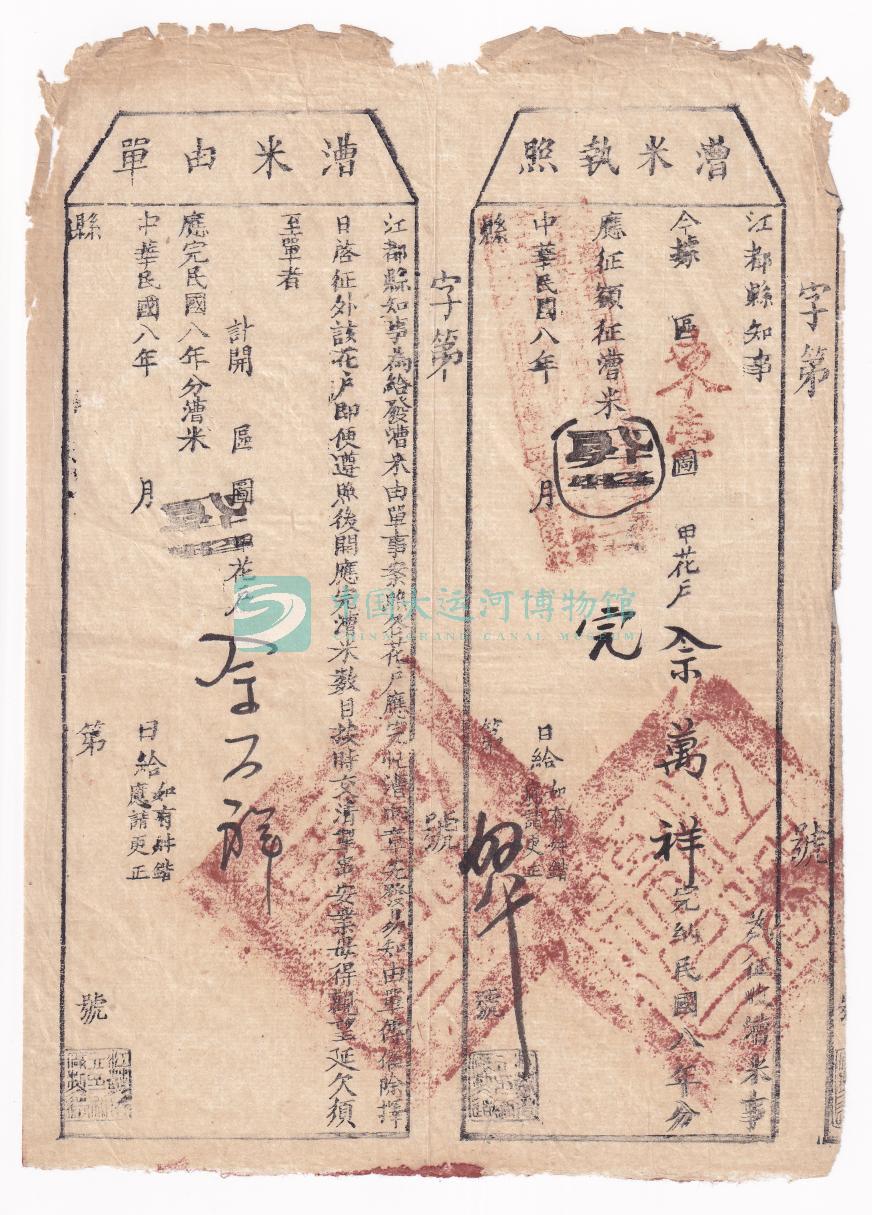 字第
號
漕米執照
江都縣知事
為征收漕米事
今據
區
圖
甲花戶
余萬祥
完納民國八年分
應征額征漕米
完
中華民國八年
月
日給
如有舛錯
應請更正
縣
第
號
字第
號
漕米由單
江都縣知事為給發漕米由單事案照各花戶應完
漕
先發易知由單傳
除擇
日啓征外該花戶即便遵照後開應完漕米數目按時交清
安業毋得觀望延欠須
至單者
計開
區
圖
甲花戶
余万祥
應完民國八年分漕米
中華民國八年
月
日給
如有舛錯
應請更正
縣
第
號
中国大运河博物馆
CHINA GRAND CANAL MUSEUM